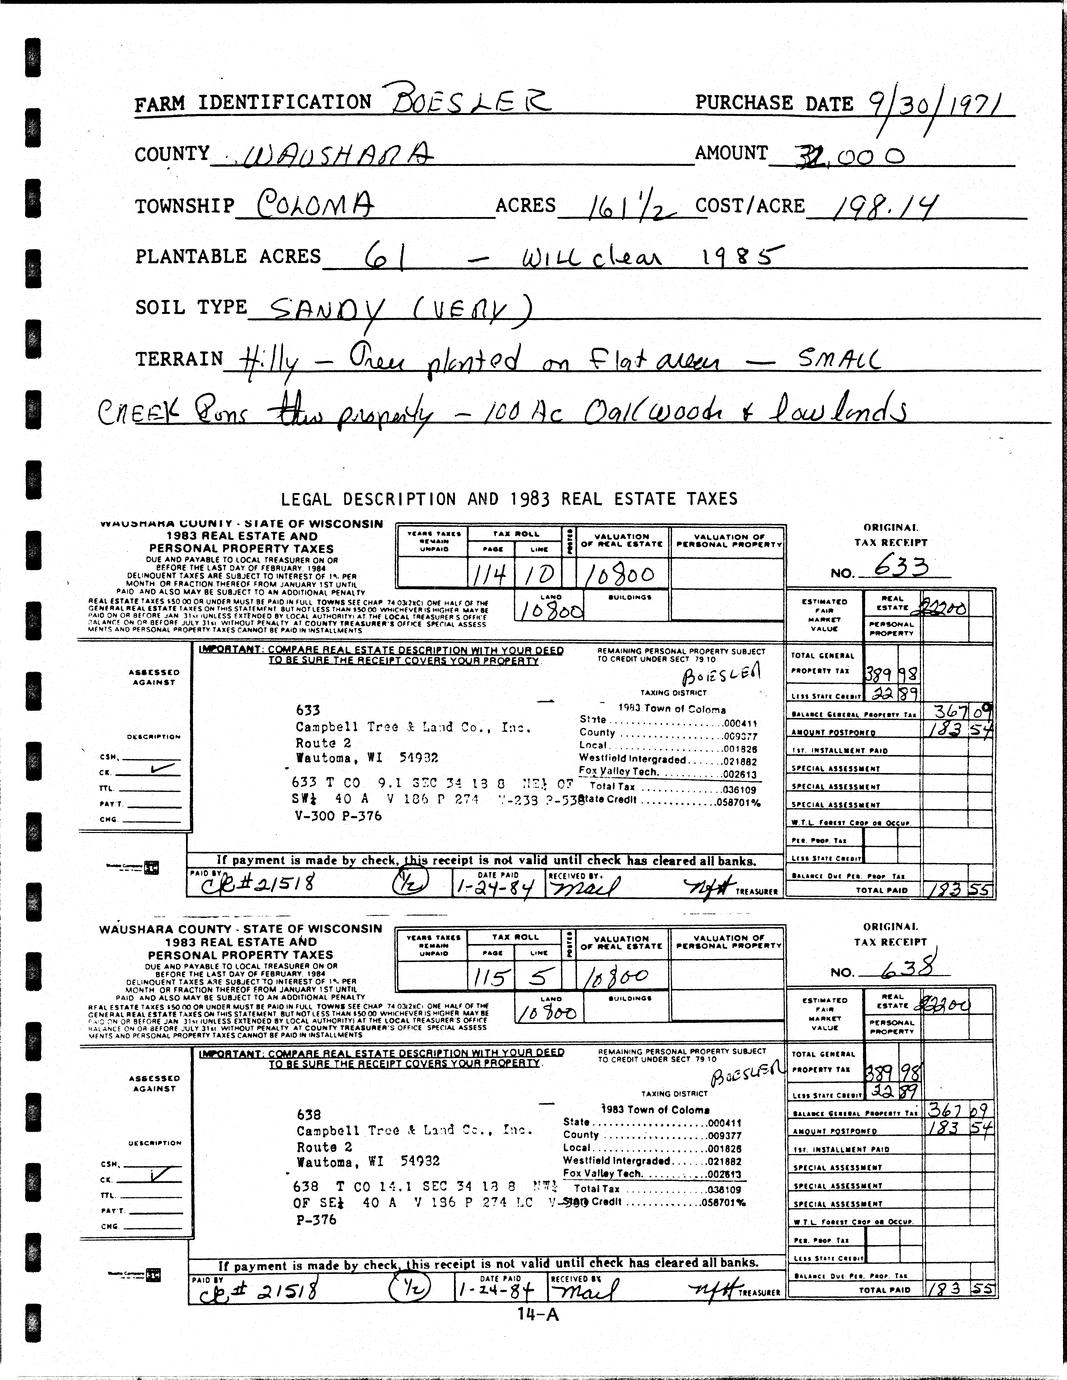 FARM IDENTIFICATION BOESLER PURCHASE DATE 9/30/1971
COUNTY WAUSHARA AMOUNT 32,000
TOWNSHIP COLOMA ACRES 161 1/2 COST/ACRE 198.14
PLANTABLE ACRES 61 - WILL clear 1985
SOIL TYPE SANDY (VERY)
TERRAIN Hilly - Trees planted on Flat areas - SMALL
CREEK Runs thru property - 100 Ac Oakwoods & lowlands
LEGAL DESCRIPTION AND 1983 REAL ESTATE TAXES
WAUSHARA COUNTY - STATE OF WISCONSIN
1983 REAL ESTATE AND
PERSONAL PROPERTY TAXES
DUE AND PAYABLE TO LOCAL TREASURER ON OR
BEFORE THE LAST DAY OF FEBRUARY, 1984
DELINQUENT TAXES ARE SUBJECT TO INTEREST OF 1% PER
MONTH OR FRACTION THEREOF FROM JANUARY 1ST UNTIL
PAID AND ALSO MAY BE SUBJECT TO AN ADDITIONAL PENALTY
REAL ESTATE TAXES $50 00 OR UNDER MUST BE PAID IN FULL TOWNS SEE CHAP 74.03(2)(C) ONE HALF OF THE
GENERAL REAL ESTATE TAXES ON THIS STATEMENT BUT NOT LESS THAN $50 00 WHICHEVER IS HIGHER MAY BE
PAID ON OR BEFORE JAN 31st (UNLESS EXTENDED BY LOCAL AUTHORITY) AT THE LOCAL TREASURER'S OFFICE
BALANCE ON OR BEFORE JULY 31st WITHOUT PENALTY AT COUNTY TREASURER'S OFFICE SPECIAL ASSESS
MENTS AND PERSONAL PROPERTY TAXES CANNOT BE PAID IN INSTALLMENTS
YEARS TAXES REMAIN UNPAID
TAX ROLL
PAGE LINE
POSTED
VALUATION OF REAL ESTATE
VALUATION OF PERSONAL PROPERTY
114 10 10800
LAND BUILDINGS
10800
ORIGINAL
TAX RECEIPT
NO. 633
ESTIMATED FAIR MARKET VALUE
REAL ESTATE 22200
PERSONAL PROPERTY
IMPORTANT: COMPARE REAL ESTATE DESCRIPTION WITH YOUR DEED
TO BE SURE THE RECEIPT COVERS YOUR PROPERTY.
REMAINING PERSONAL PROPERTY SUBJECT
TO CREDIT UNDER SECT 79 10
BOESLER
ASSESSED
AGAINST
TAXING DISTRICT
633
Campbell Tree & Land Co., Inc.
Route 2
Wautoma, WI 54982
633 T CO 9.1 SEC 34 18 8 NE¼ OF
SW¼ 40 A V 186 P 274 V-238 P-538
V-300 P-376
1983 Town of Coloma
State .000411
County .009377
Local .001826
Westfield Intergraded .021882
Fox Valley Tech. .002613
Total Tax .036109
State Credit .058701%
DESCRIPTION
CSH.
CK. ✓
TTL.
PAY'T.
CHG.
TOTAL GENERAL
PROPERTY TAX 389 98
LESS STATE CREDIT 22 89
BALANCE GENERAL PROPERTY TAX 367 09
AMOUNT POSTPONED 183 54
1ST. INSTALLMENT PAID
SPECIAL ASSESSMENT
SPECIAL ASSESSMENT
SPECIAL ASSESSMENT
W.T.L. FOREST CROP OR OCCUP.
PER. PROP. TAX
LESS STATE CREDIT
BALANCE DUE PER. PROP TAX
TOTAL PAID 183 55
If payment is made by check, this receipt is not valid until check has cleared all banks.
PAID BY CK # 21518 (1/2) DATE PAID 1-24-84 RECEIVED BY: Mail TREASURER
WAUSHARA COUNTY - STATE OF WISCONSIN
1983 REAL ESTATE AND
PERSONAL PROPERTY TAXES
DUE AND PAYABLE TO LOCAL TREASURER ON OR
BEFORE THE LAST DAY OF FEBRUARY, 1984
DELINQUENT TAXES ARE SUBJECT TO INTEREST OF 1% PER
MONTH OR FRACTION THEREOF FROM JANUARY 1ST UNTIL
PAID AND ALSO MAY BE SUBJECT TO AN ADDITIONAL PENALTY
REAL ESTATE TAXES $50 00 OR UNDER MUST BE PAID IN FULL TOWNS SEE CHAP 74 03(2)(C) ONE HALF OF THE
GENERAL REAL ESTATE TAXES ON THIS STATEMENT BUT NOT LESS THAN $50 00 WHICHEVER IS HIGHER MAY BE
PAID ON OR BEFORE JAN 31st (UNLESS EXTENDED BY LOCAL AUTHORITY) AT THE LOCAL TREASURER'S OFFICE
BALANCE ON OR BEFORE JULY 31st WITHOUT PENALTY AT COUNTY TREASURER'S OFFICE SPECIAL ASSESS
MENTS AND PERSONAL PROPERTY TAXES CANNOT BE PAID IN INSTALLMENTS
YEARS TAXES REMAIN UNPAID
TAX ROLL
PAGE LINE
POSTED
VALUATION OF REAL ESTATE
VALUATION OF PERSONAL PROPERTY
115 5 10800
LAND BUILDINGS
10800
ORIGINAL
TAX RECEIPT
NO. 638
ESTIMATED FAIR MARKET VALUE
REAL ESTATE 22200
PERSONAL PROPERTY
IMPORTANT: COMPARE REAL ESTATE DESCRIPTION WITH YOUR DEED
TO BE SURE THE RECEIPT COVERS YOUR PROPERTY.
REMAINING PERSONAL PROPERTY SUBJECT
TO CREDIT UNDER SECT. 79 10
BOESLER
ASSESSED
AGAINST
TAXING DISTRICT
638
Campbell Tree & Land Co., Inc.
Route 2
Wautoma, WI 54982
638 T CO 14.1 SEC 34 18 8 NW¼
OF SE¼ 40 A V 186 P 274 LC V-300
P-376
1983 Town of Coloma
State .000411
County .009377
Local .001826
Westfield Intergraded .021882
Fox Valley Tech. .002613
Total Tax .036109
State Credit .058701%
DESCRIPTION
CSH.
CK. ✓
TTL.
PAY'T.
CHG.
TOTAL GENERAL
PROPERTY TAX 389 98
LESS STATE CREDIT 22 89
BALANCE GENERAL PROPERTY TAX 367 09
AMOUNT POSTPONED 183 54
1ST. INSTALLMENT PAID
SPECIAL ASSESSMENT
SPECIAL ASSESSMENT
SPECIAL ASSESSMENT
W.T.L. FOREST CROP OR OCCUP.
PER. PROP TAX
LESS STATE CREDIT
BALANCE DUE PER. PROP. TAX
TOTAL PAID 183 55
If payment is made by check, this receipt is not valid until check has cleared all banks.
PAID BY CK # 21518 (1/2) DATE PAID 1-24-84 RECEIVED BY Mail TREASURER
14-A